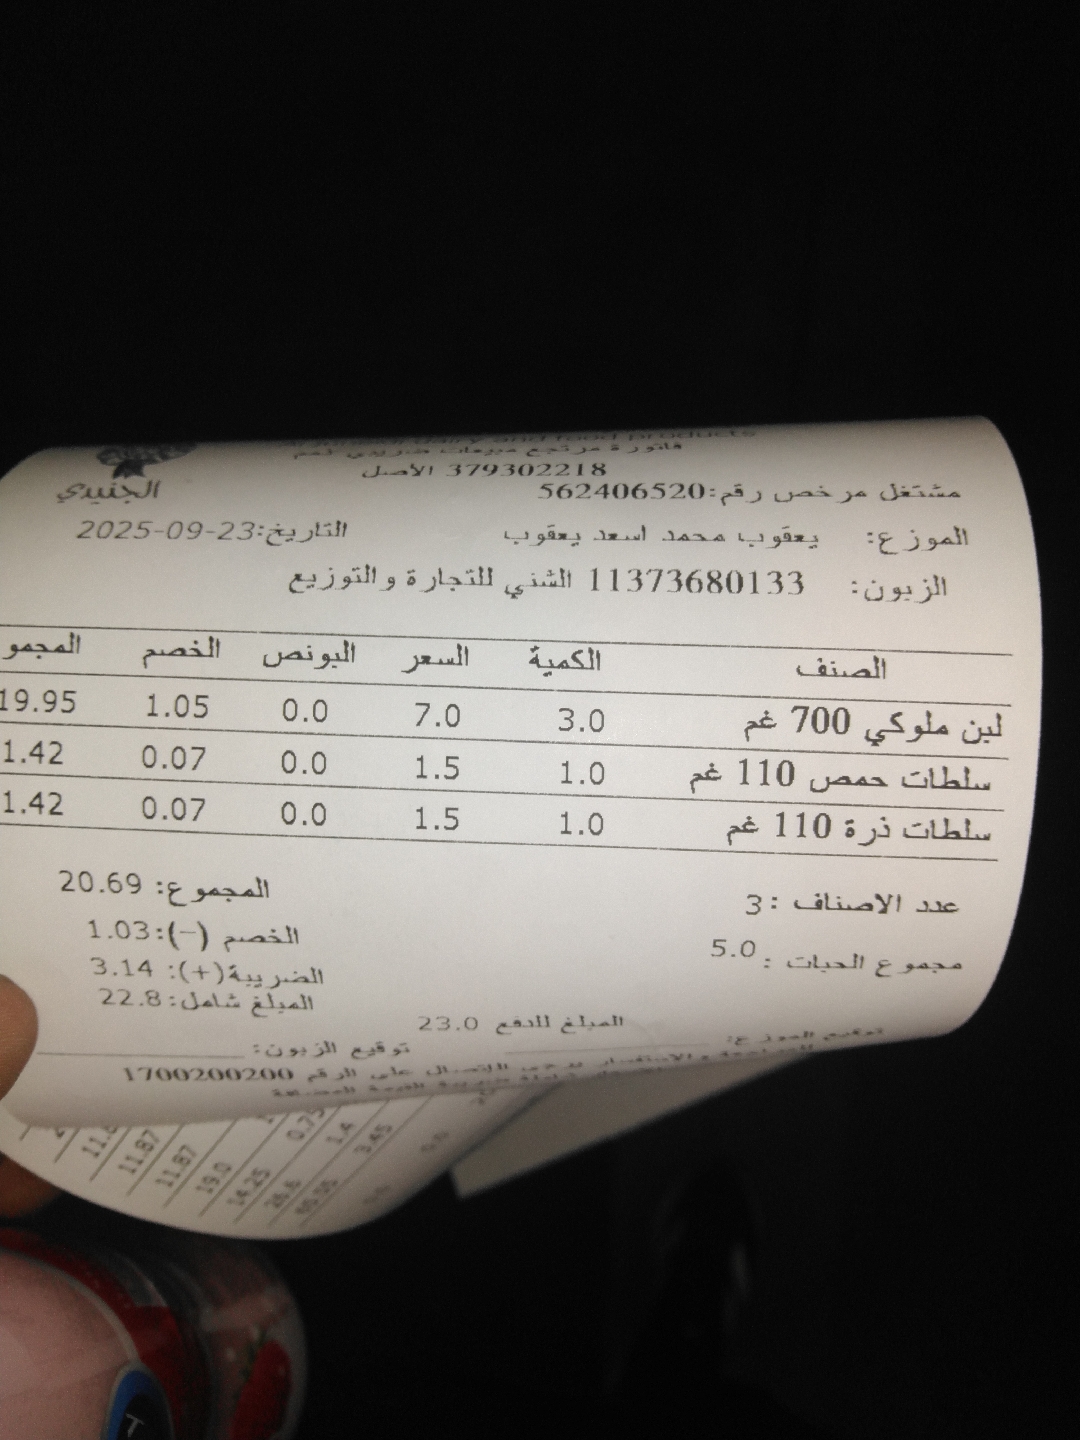 Al Junaidi dairy and food products
فاتورة مرتجع مبيعات ضريبي
379302218 الأصل
الجنيدي
مشتغل مرخص رقم:562406520
الموزع: يعقوب محمد اسعد يعقوب التاريخ:2025-09-23
الزبون: 11373680133 الشني للتجارة والتوزيع
الصنف الكمية السعر البونص الخصم المجمو
لبن ملوكي 700 غم 3.0 7.0 0.0 1.05 19.95
سلطات حمص 110 غم 1.0 1.5 0.0 0.07 1.42
سلطات ذرة 110 غم 1.0 1.5 0.0 0.07 1.42
عدد الاصناف :3 المجموع: 20.69
الخصم (-):1.03
مجموع الحبات : 5.0 الضريبة(+): 3.14
المبلغ شامل:22.8
المبلغ للدفع 23.0
توقيع الموزع: توقيع الزبون:
للمراجعة والاستفسار يرجى الاتصال على الرقم 1700200200
11.87
11.87
19.0
14.25
26.6
0.75
1.4
3.45